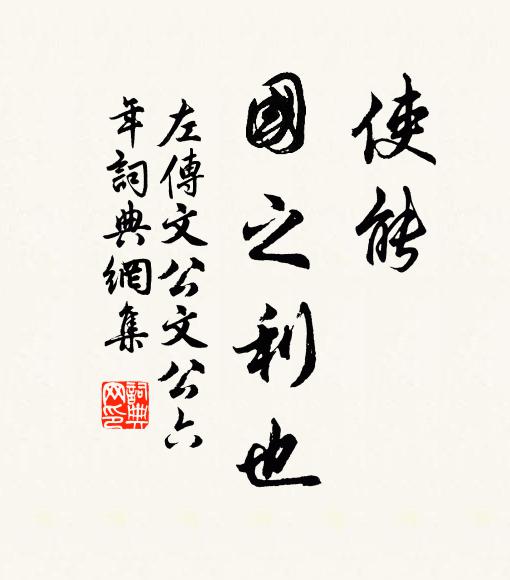 使能
國之利也
左傳文公文公六
年詞典網集
詞典網印